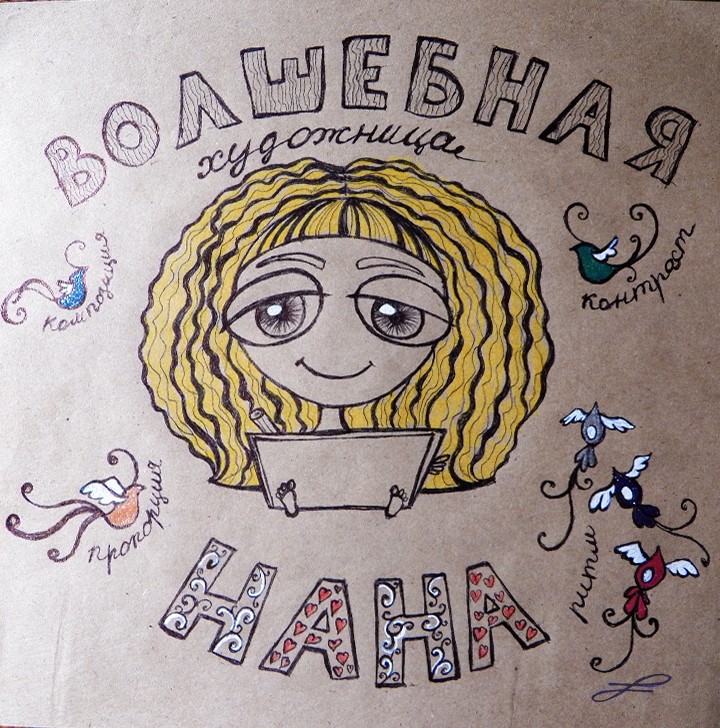 ВОЛШЕБНАЯ
художница
композиция
контраст
пропорция
ритм
НАНА